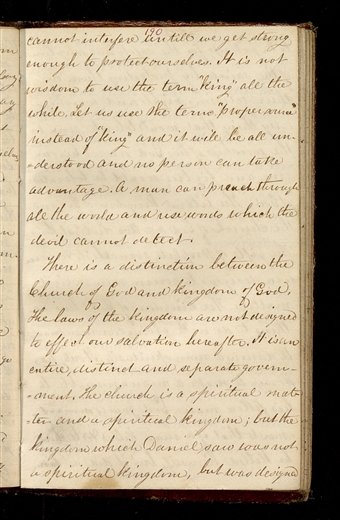 190
cannot interfere untill we get strong
enough to protect ourselves. It is not
wisdom to use the term "king" all the
while. Let us use the term "proper sourse"
instead of "king" and it will be all un-
-derstood and no person can take
advantage. A man can preach through
all the world and use words which the
devil cannot detect.
There is a distinction between the
Church of God and kingdom of God.
The laws of the kingdom are not designed
to effect our salvation hereafter. It is an
entire, distinct and separate govern-
-ment. The church is a spiritual mat-
-ter and a spiritual kingdom; but the
kingdom which Daniel saw was not
a spiritual kingdom, but was designed